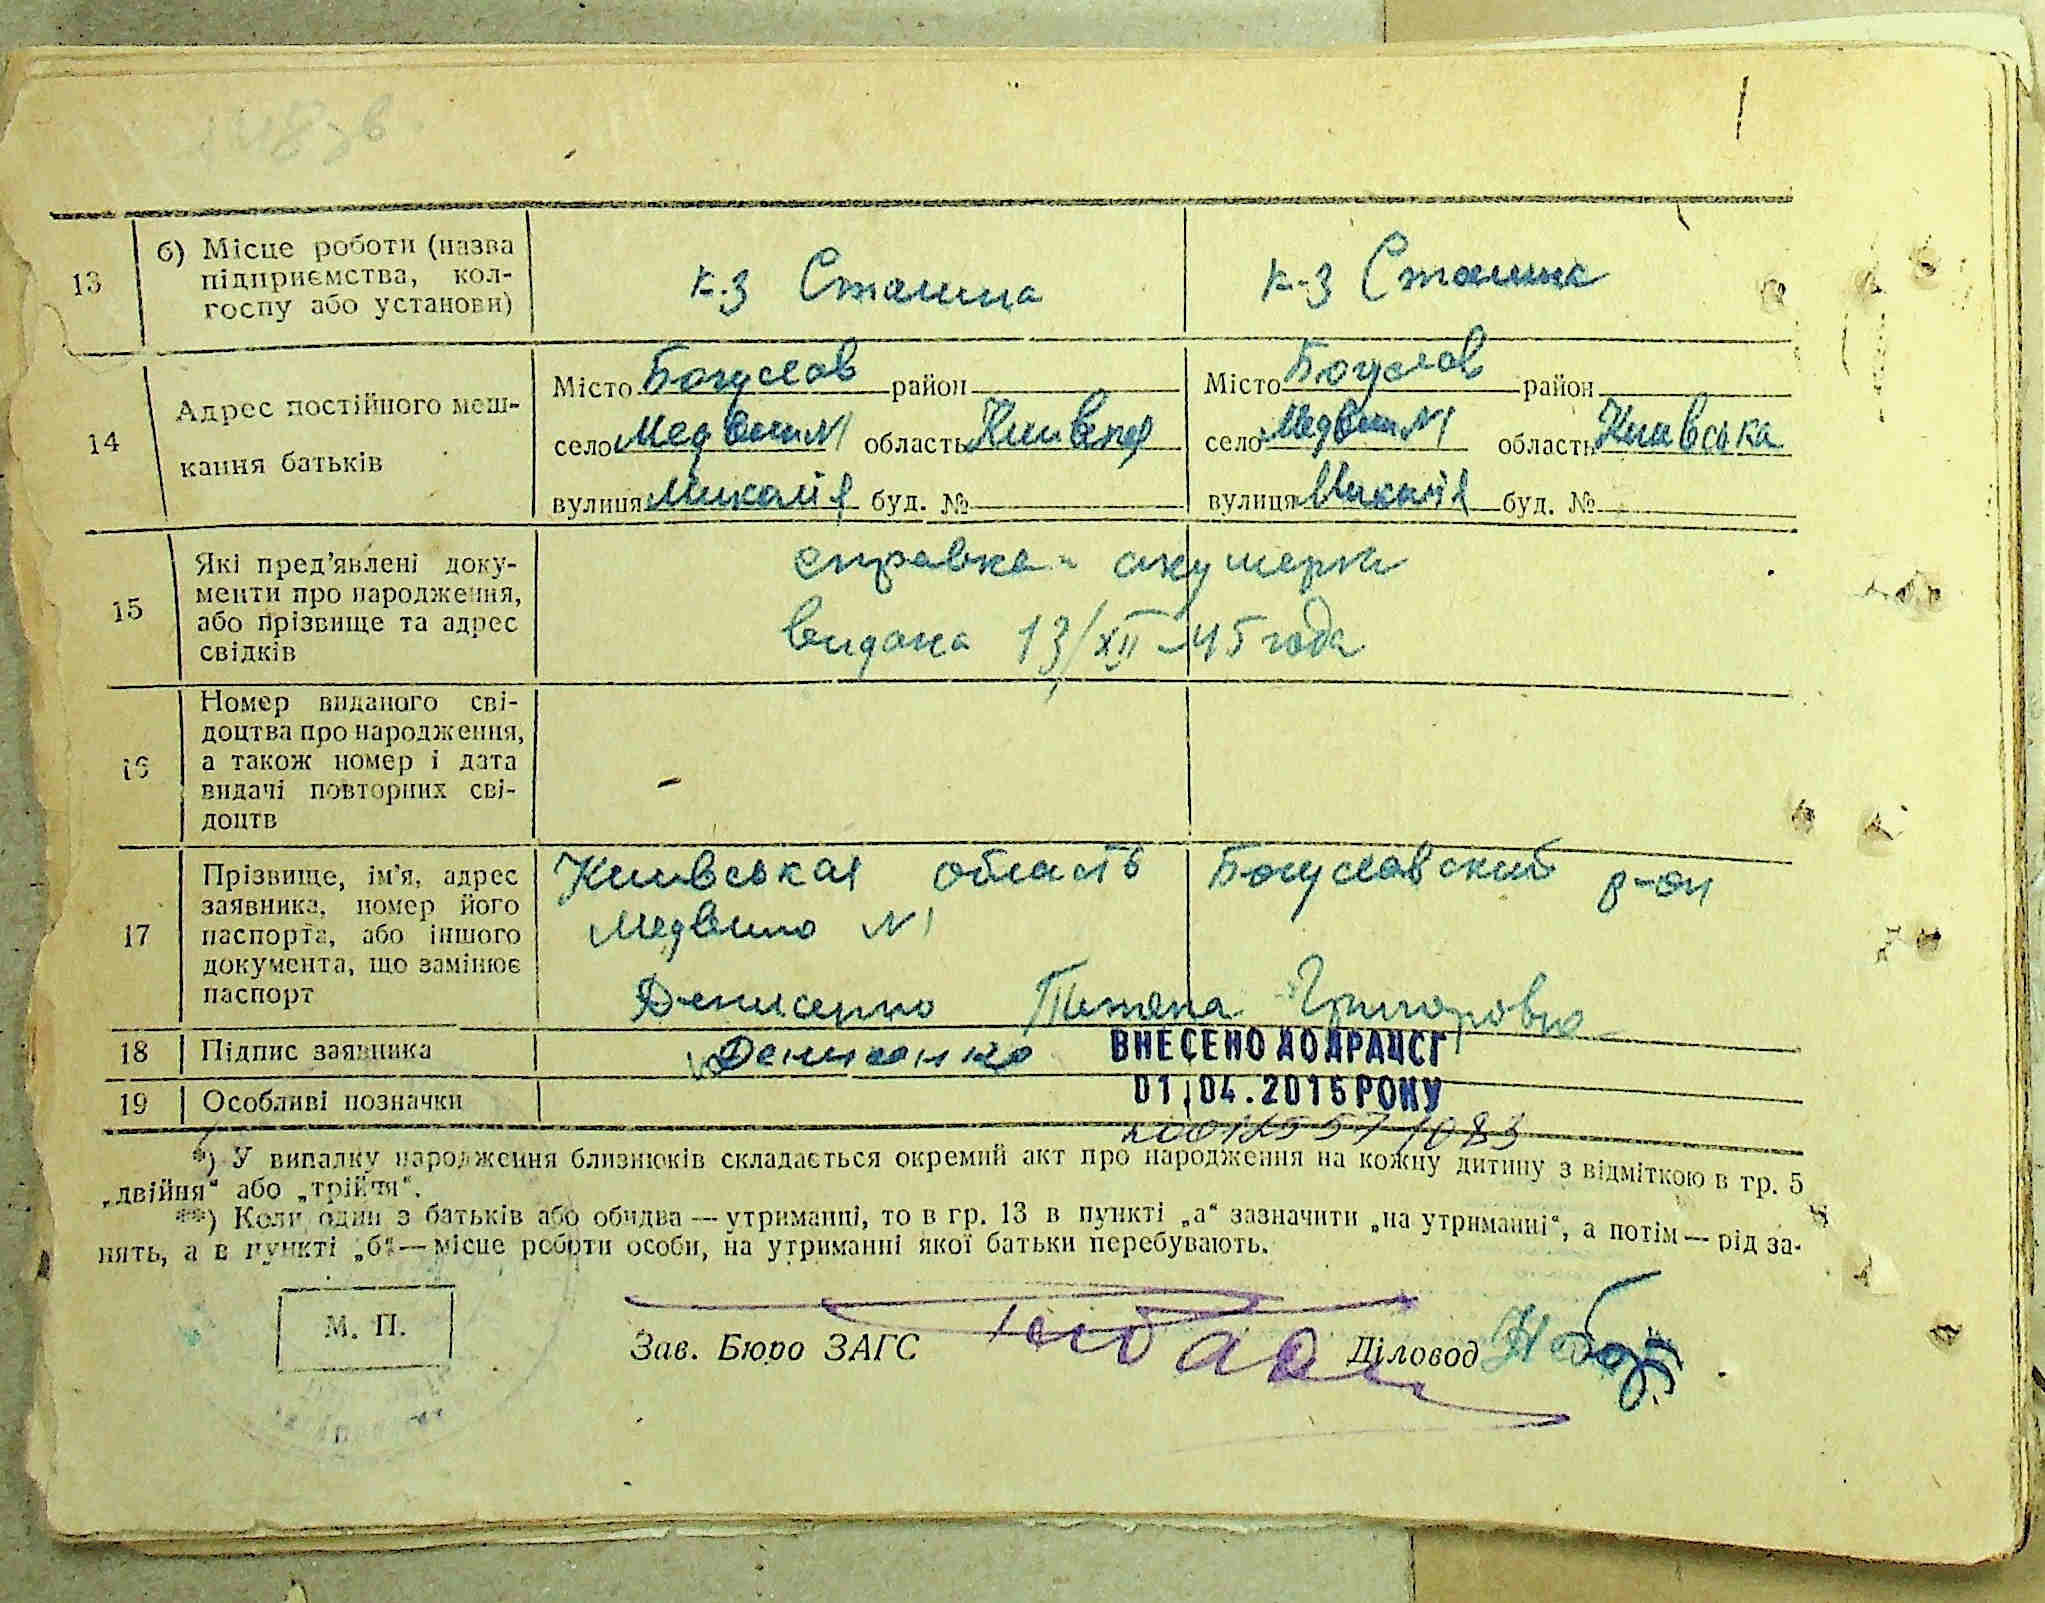 13
б) Місце роботи (назва
підприємства, кол-
госпу або установи)
к-з Сталина
к-з Сталина
14
Адрес постійного меш-
кання батьків
Місто Богуслав район
село Медвин N1 область Киівская
вулиця Миколія буд. №
Місто Богуслав район
село Медвин N1 область Киівська
вулиця Миколія буд. №
15
Які пред’явлені доку-
менти про народження,
або прізвище та адрес
свідків
справка - акушерки
видана 13/XII-45 года
16
Номер виданого сві-
доцтва про народження,
а також номер і дата
видачі повторних сві-
доцтв
17
Прізвище, ім’я, адрес
заявника, номер його
паспорта, або іншого
документа, що замінює
паспорт
Киівськая область Богуславский р-он
Медвино N1
Денисенко Тетяна Григоровна
18
Підпис заявника
Денисенко
19
Особливі позначки
ВНЕСЕНО ДО ДРАЦСГ
01.04.2015 РОКУ
*) У випадку народження близнюків складається окремий акт про народження на кожну дитину з відміткою в гр. 5
„двійня“ або „трійня“.
**) Коли один з батьків або обидва — утриманці, то в гр. 13 в пункті „а“ зазначити „на утриманні“, а потім — рід за-
нять, а в пункті „б“ — місце роботи особи, на утриманні якої батьки перебувають.
М. П.
Зав. Бюро ЗАГС
Діловод